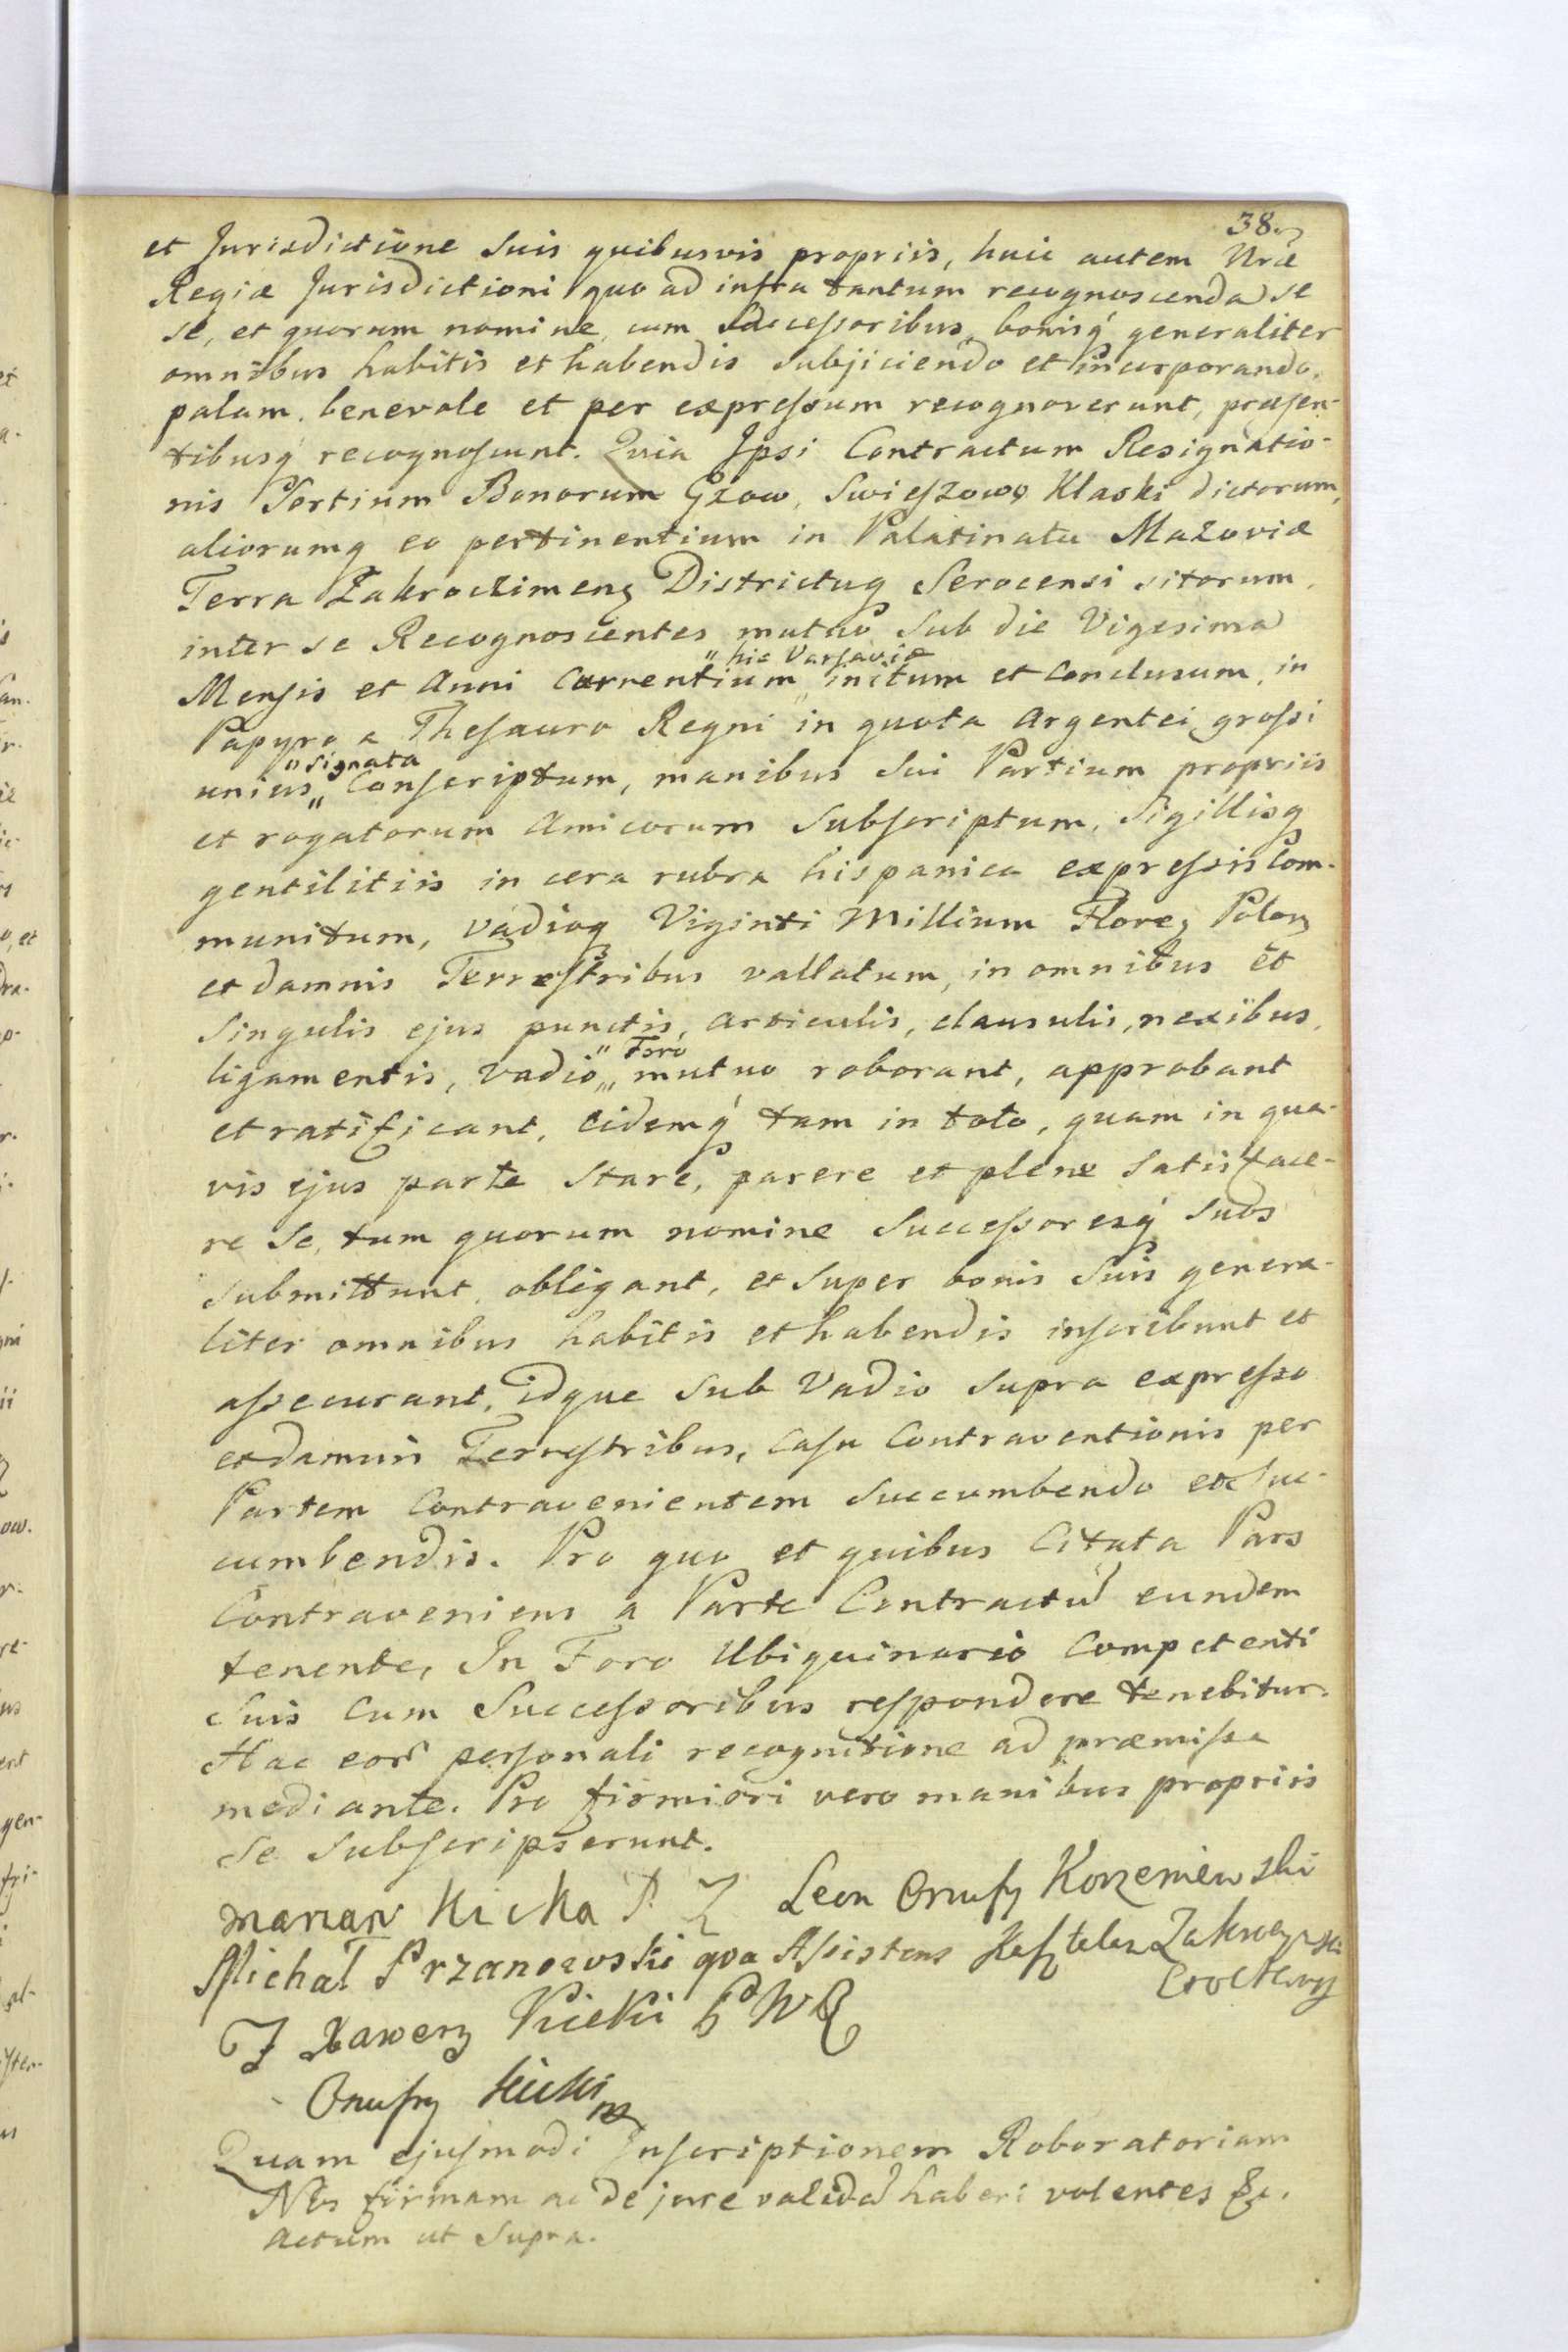 38.
et Jurisdictione Suis quibusvis propriis, huic autem Nræ
Regiæ Jurisdictioni quo ad infra tantum recognoscenda se
se, et quorum nomine, cum Successoribus, bonisq́ generaliter
omnibus habitis et habendis Subjiciendo et incorporando.
palam, benevole et per expressum recognoverunt, præsen-
tibusq́ recognoscunt. Quia Ipsi Contractum Resignatio-
nis Sortium Bonorum Gzow, Swieszowo Klaski dictorum,
aliorumq eo pertinentium in Palatinatu Mazoviæ
Terra Zakroczimens Districtuq Serocensi sitorum,
inter se Recognoscentes mutuo Sub die Vigesima
Mensis et Anni Currentium "hic Varsaviæ" initum et Conclusum, in
Papyro a Thesauro Regni in quota Argentei grossi
unius "signata" Conscriptum, manibus Sui Partium propriis
et rogatorum Amicorum Subscriptum, Sigillisq
gentilitiis in cera rubra hispanica expressis Com-
munitum, vadioq Viginti Millium Flore, Polon
et damnis Terrestribus vallatum, in omnibus et
Singulis ejus punctis, articulis, clausulis, nexibus,
ligamentis, vadio "Foro" mutuo roborant, approbant
et ratificant, eidemq́ tam in toto, quam in qua-
vis ejus parte Stare, parere et plene Satisface-
re Se, tum quorum nomine Successoresq́ Suos
Submittunt, obligant, et Super bonis Suis genera-
liter omnibus habitis et habendis inscribunt et
assecurant, idque Sub Vadio Supra expresso
et damnis Terrestribus, Casu Contraventionis per
Partem Contravenientem Succumbendo et Suc-
cumbendis. Pro quo et quibus Citata Pars
Contraveniens a Parte Contractu eundem
tenente, In Foro Ubiquinario Competenti
Suis Cum Successoribus respondere tenebitur.
Hac eor personali recognitione ad præmissa
mediante. Pro firmiori vero manibus propriis
Se Subscripserunt.
Marian Kicka P Z Leon Onufry Korzeniewski
Michał Przanowski qva Assistens Kasztelan Zakroczymski
J Xawery Kicki
Onufry Kicki
Quam ejusmodi Inscriptionem Roboratoriam
Nos firmam ac de jure valida haberi volentes &c.
Actum ut Supra.